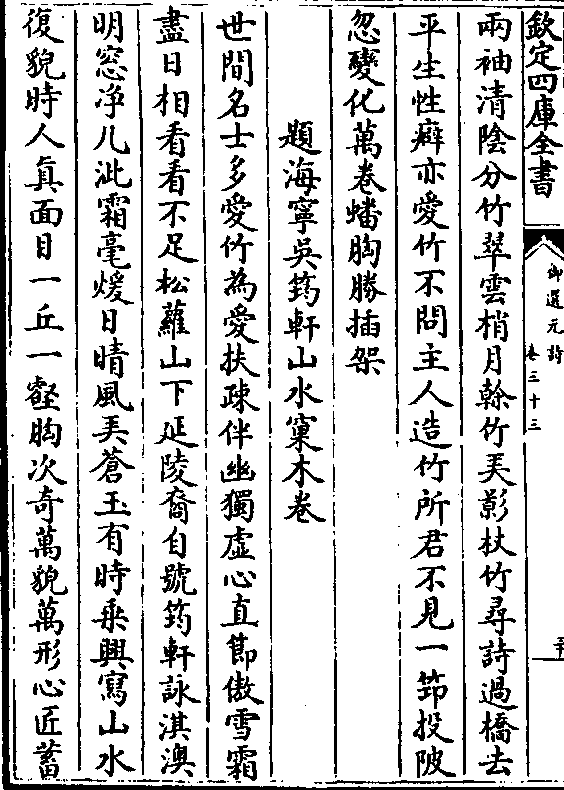 欽定四庫全書
御選元詩
卷三十三
兩袖清陰分竹翠雲梢月榦竹美影杖竹尋詩過橋去
平生性癖亦愛竹不問主人造竹所君不見一筇投陂
忽變化萬卷蟠胸勝插架
題海寧吳筠軒山水窠木卷
世間名士多愛竹為愛扶疎伴幽獨虛心直節傲雪霜
盡日相看看不足松蘿山下延陵裔自號筠軒詠淇澳
明窓净几泚霜毫煖日晴風弄蒼玉有時乘興寫山水
復貌時人真面目一丘一壑胸次奇萬貌萬形心匠蓄